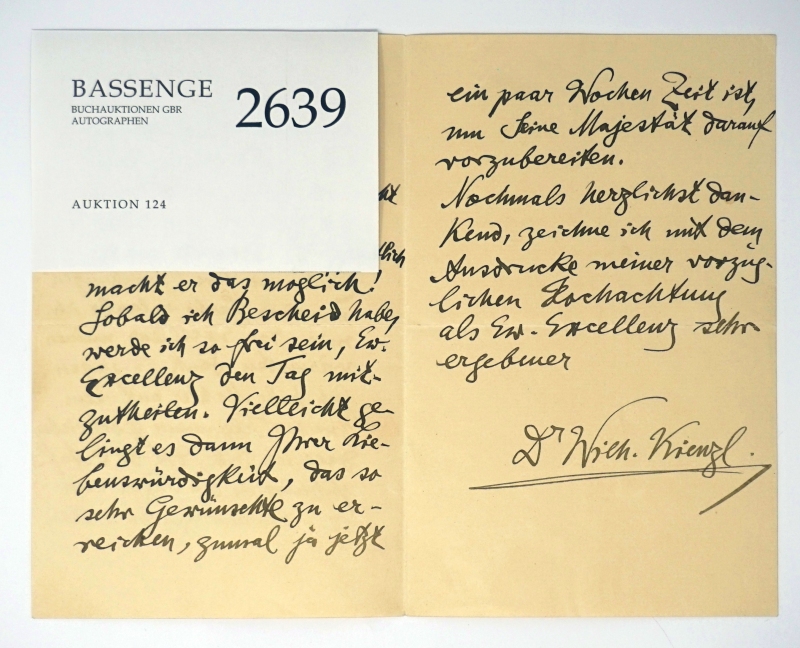 BASSENGE
BUCHAUKTIONEN GBR
AUTOGRAPHEN
2639
AUKTION 124
macht er das möglich!
Sobald ich Bescheid habe,
werde ich so frei sein, Ew.
Excellenz den Tag mit-
zutheilen. Vielleicht ge-
lingt es dann Ihrer Lie-
benswürdigkeit, das so
sehr Gewünschte zu er-
reichen, zumal ja jetzt
ein paar Wochen Zeit ist,
um Seine Majestät darauf
vorzubereiten.
Nochmals herzlichst dan-
kend, zeichne ich mit dem
Ausdrucke meiner vorzüg-
lichen Hochachtung
als Ew. Excellenz sehr
ergebener
Dr Wilh. Kienzl.